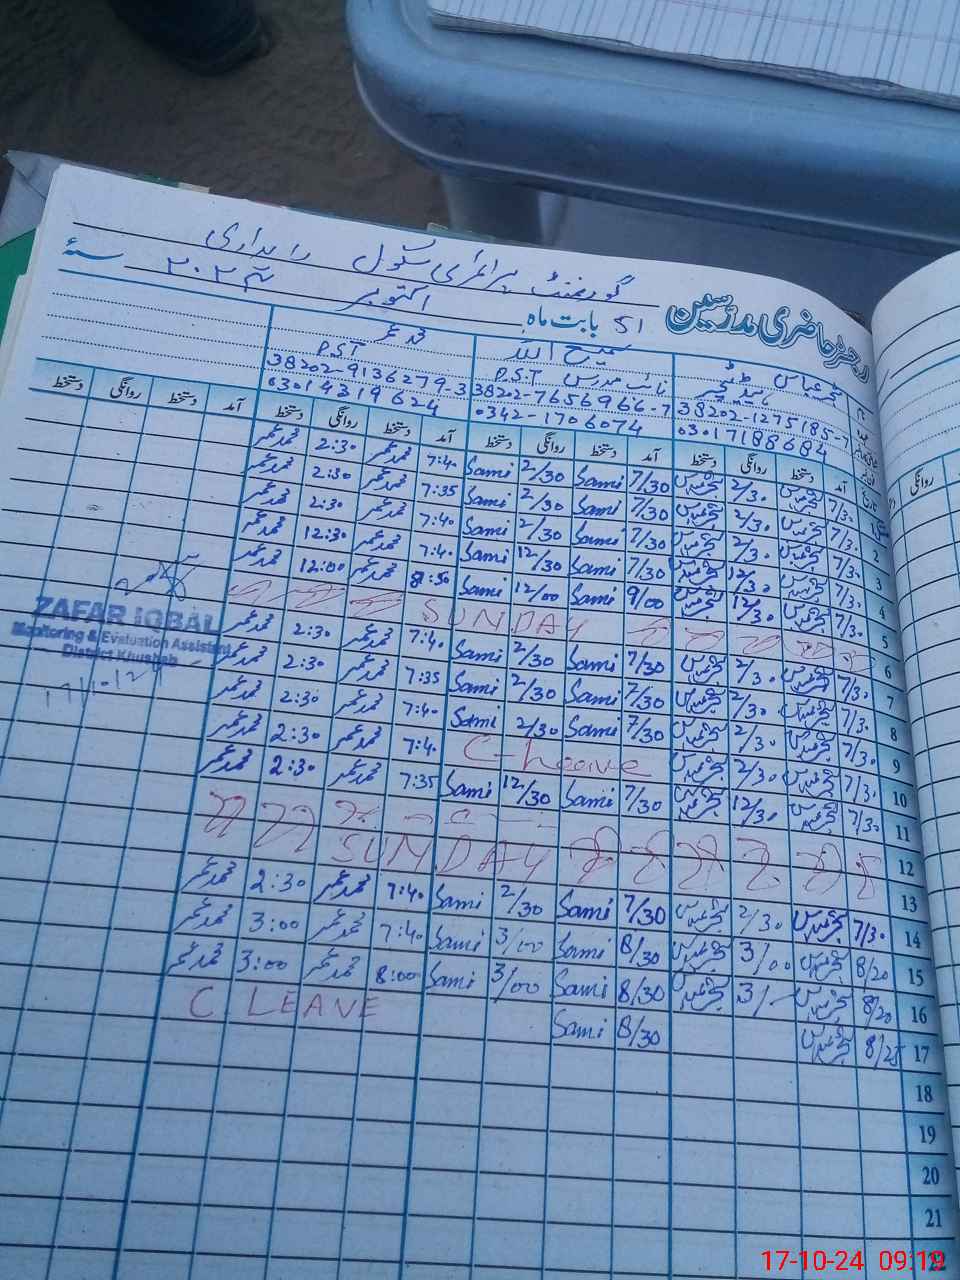 گورنمنٹ پرائمری سکول راہداری
رجسٹر حاضری مدرسین 51 بابت ماہ اکتوبر سنہ ۲۰۲۴
عباس ہیڈ ٹیچر سمیع اللہ محمد عمر
نائب مدرس P.S.T P.S.T
38202-1275185-7 38202-7656966-7 38202-9136279-3
03017188684 0342-1706074 03014319624
آمد دستخط روانگی دستخط آمد دستخط روانگی دستخط آمد دستخط روانگی دستخط آمد دستخط روانگی دستخط
1 7/30 2/30 7/30 Sami 2/30 Sami 7:40 محمد عمر 2:30 محمد عمر
2 7/30 2/30 7/30 Sami 2/30 Sami 7:35 محمد عمر 2:30 محمد عمر
3 7/30 2/30 7/30 Sami 2/30 Sami 7:40 محمد عمر 2:30 محمد عمر
4 7/30 12/30 7/30 Sami 12/30 Sami 7:40 محمد عمر 12:30 محمد عمر
5 7/30 12/30 9/00 Sami 12/00 Sami 8:50 محمد عمر 12:00 محمد عمر
6 SUNDAY
7 7/30 2/30 7/30 Sami 2/30 Sami 7:40 محمد عمر 2:30 محمد عمر
8 7/30 2/30 7/30 Sami 2/30 Sami 7:35 محمد عمر 2:30 محمد عمر
9 7/30 2/30 7/30 Sami 2/30 Sami 7:40 محمد عمر 2:30 محمد عمر
10 7/30 2/30 C-Leave 7:40 محمد عمر 2:30 محمد عمر
11 7/30 12/30 7/30 Sami 12/30 Sami 7:35 محمد عمر 2:30 محمد عمر
12
13 SUNDAY
14 7/30 2/30 7/30 Sami 2/30 Sami 7:40 محمد عمر 2:30 محمد عمر
15 8/20 3/00 8/30 Sami 3/00 Sami 7:40 محمد عمر 3:00 محمد عمر
16 8/20 3/- 8/30 Sami 3/00 Sami 8:00 محمد عمر 3:00 محمد عمر
17 8/25 8/30 Sami C LEANE
18
19
20
21
22
ZAFAR IQBAL
Monitoring & Evaluation Assistant
District Khushab
17/10/24
روانگی
17-10-24 09:19